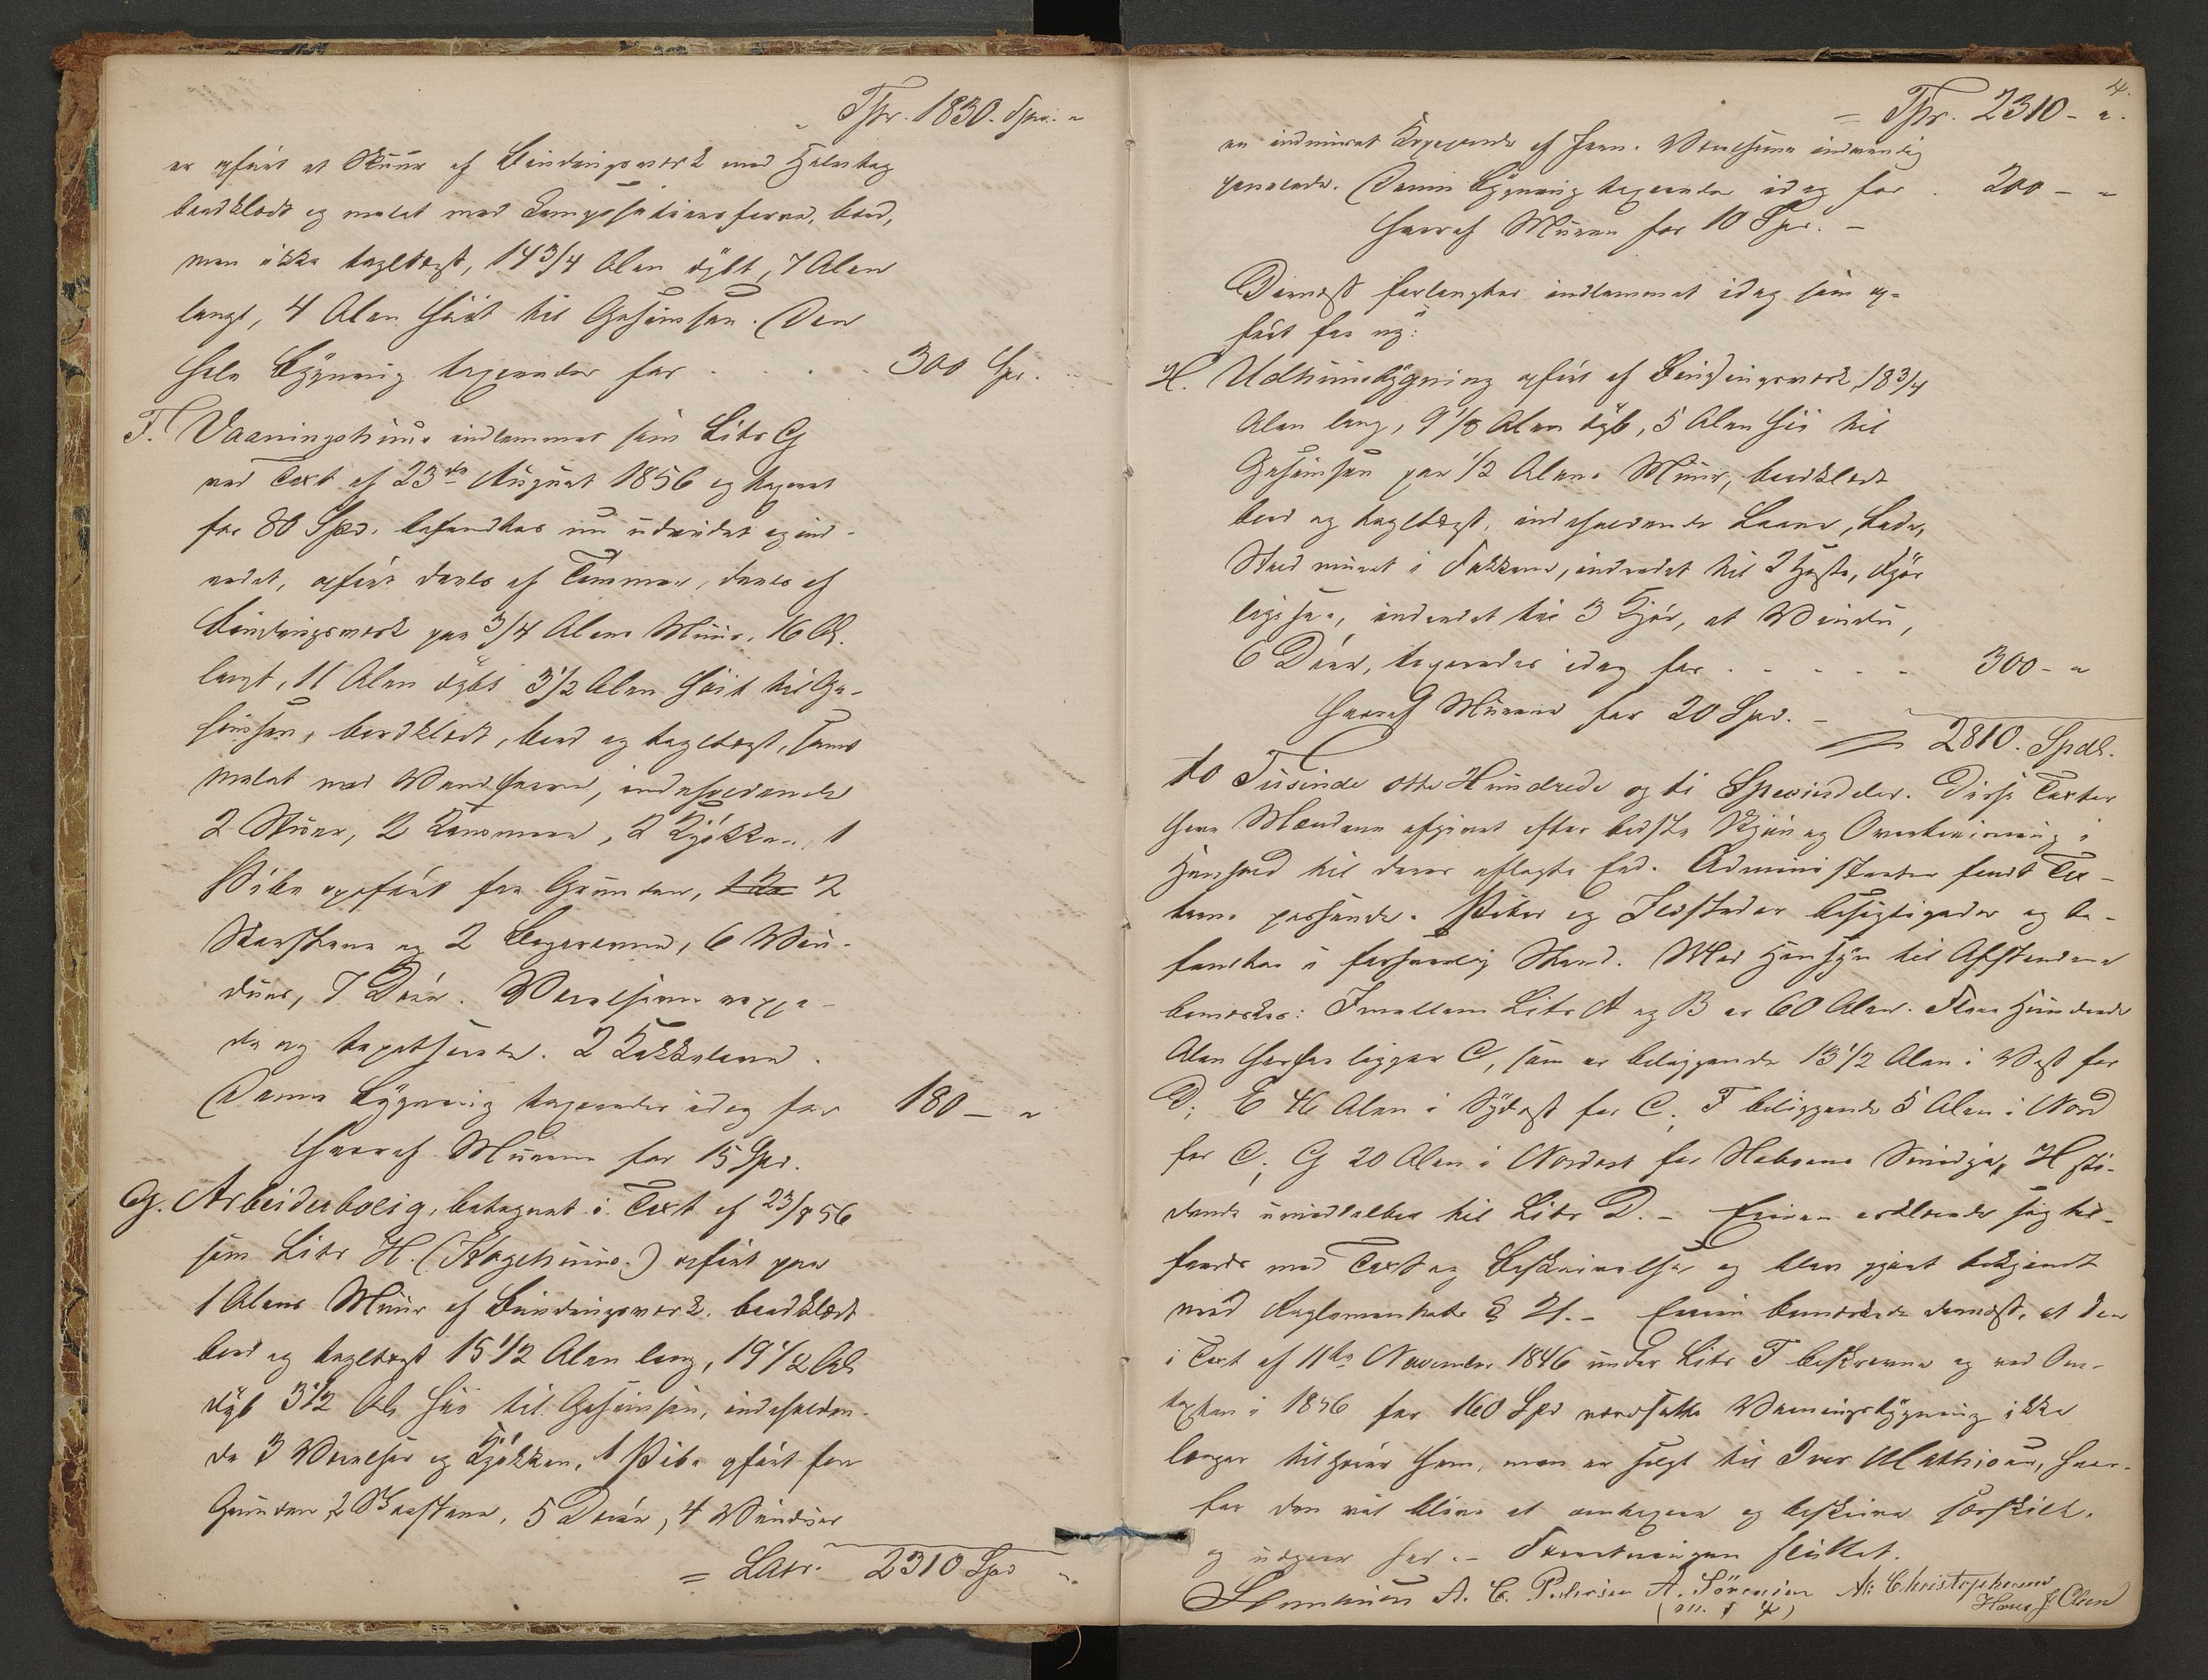 Tspr. 1830. Spec. "
er opført et Skuur af Bindingsværk med Halvtag
bordklædt og malet med Compositionsfarve, bord,
men ikke tagltægt, 14 3/4 Alen dybt, 7 Alen
langt, 4 Alen høit til Gesimsen. Den
hele Bygning taxeredes for . . . . 300 Spd.
F. Vaaningshuus indlemmes som Litr G
ved Taxt af 23de August 1856 og taxeret
for 80 Spd. befandtes nu udvidet og ind-
redet, opført deels af Tømmer, deels af
Bindingsværk paa 3/4 Alens Muur, 16 Al.
langt, 11 Alen dybt 3 1/2 Alen høit til Ge-
simsen, bordklædt, bord og tagltægt, samt
malet med Vandfarve, indeholdende
2 Stuer, 2 Kammere, 2 Kjøkken, 1
Pibe opført fra Grunden, 2
Skorstene og 2 Bagerovne, 6 Vin-
duer, 7 Døre. Værelserne
og tapetserede. 2 Kakkelovne.
Denne Bygning taxeredes idag for 180 - "
Hvoraf Murene for 15 Spd.
G. Arbeiderbolig, betegnet i Taxt af 23/8 56
som Litr H. (Stagehuus.) opført paa
1 Alens Muur af Bindingsværk, bordklædt
bord og tagltægt 15 1/2 Alen lang, 19 1/2 Al
dyb 3 1/2 Al høi til Gesimsen, indeholden-
de 3 Værelser og Kjøkken, 1 Pibe opført fra
Grunden 2 Skorstene, 5 Døre, 4 Vinduer
= Latr. 2310 Spd "
4.
= Tspr. 2310 - ".
en indmuret af Jern. Værelserne indvendig
panelede. Denne Bygning taxeredes idag for . 200 - "
Hvoraf Muren for 10 Spd. -
Dernæst forlangtes indlemmet idag som op-
ført fra ny:
H. Udhuusbygning opført af Bindingsværk, 18 3/4
Alen lang, 9 1/8 Alen dyb, 5 Alen høi til
Gesimsen paa 1/2 Alens Muur, bordklædt
bord og tagltægt, indeholdende Laave, Lade,
Stald muret i , indredet til 2 Heste, Fjøs
ligesaa, indredet til 3 Kjør, et Vindu,
6 Døre, taxeredes idag for . . . . . 300 - "
Hvoraf Murene for 20 Spd. -
= 2810. Spdl.
to Tusinde otte Hundrede og ti Speciedaler. Disse Taxter
have Mændene afgivet efter bedste Skjøn og Overbeviisning i
Henhold til deres aflagte Eed. Administrator fandt Tax-
terne passende. Piber og Ildsteder besigtigedes og be-
fandtes i forsvarlig Stand. Med Hensyn til Afstandene
bemærkes: Imellem Litr A og B er 60 Alen. Hundrede
Alen herfra ligger C, som er beliggende 13 1/2 Alen i Vest for
D; E 46 Alen i Sydost for C; F beliggende 5 Alen i Nord
for C; G 20 Alen i Nordost for Smedje, H stø-
dende umiddelbar til Litr D. - Eieren erklærede sig til-
freds med Taxt og Beskrivelser og blev gjort bekjendt
med Reglementets § 21. - Eieren bemærkede dernæst, at den
i Taxt af 11te November 1846 under Litr F beskrevne og ved Om-
taxten i 1856 for 160 Spd værdsatte Vaaningsbygning ikke
længer tilhører ham, men er solgt til Iver Mathisen, hvor-
for den vil blive at omtaxere og beskrive særskilt,
og udgaar her. - Forretningen sluttet.
A. C. Pedersen A. Sörensen A: Christophersen
(m. f. P.) Hans J. Olsen